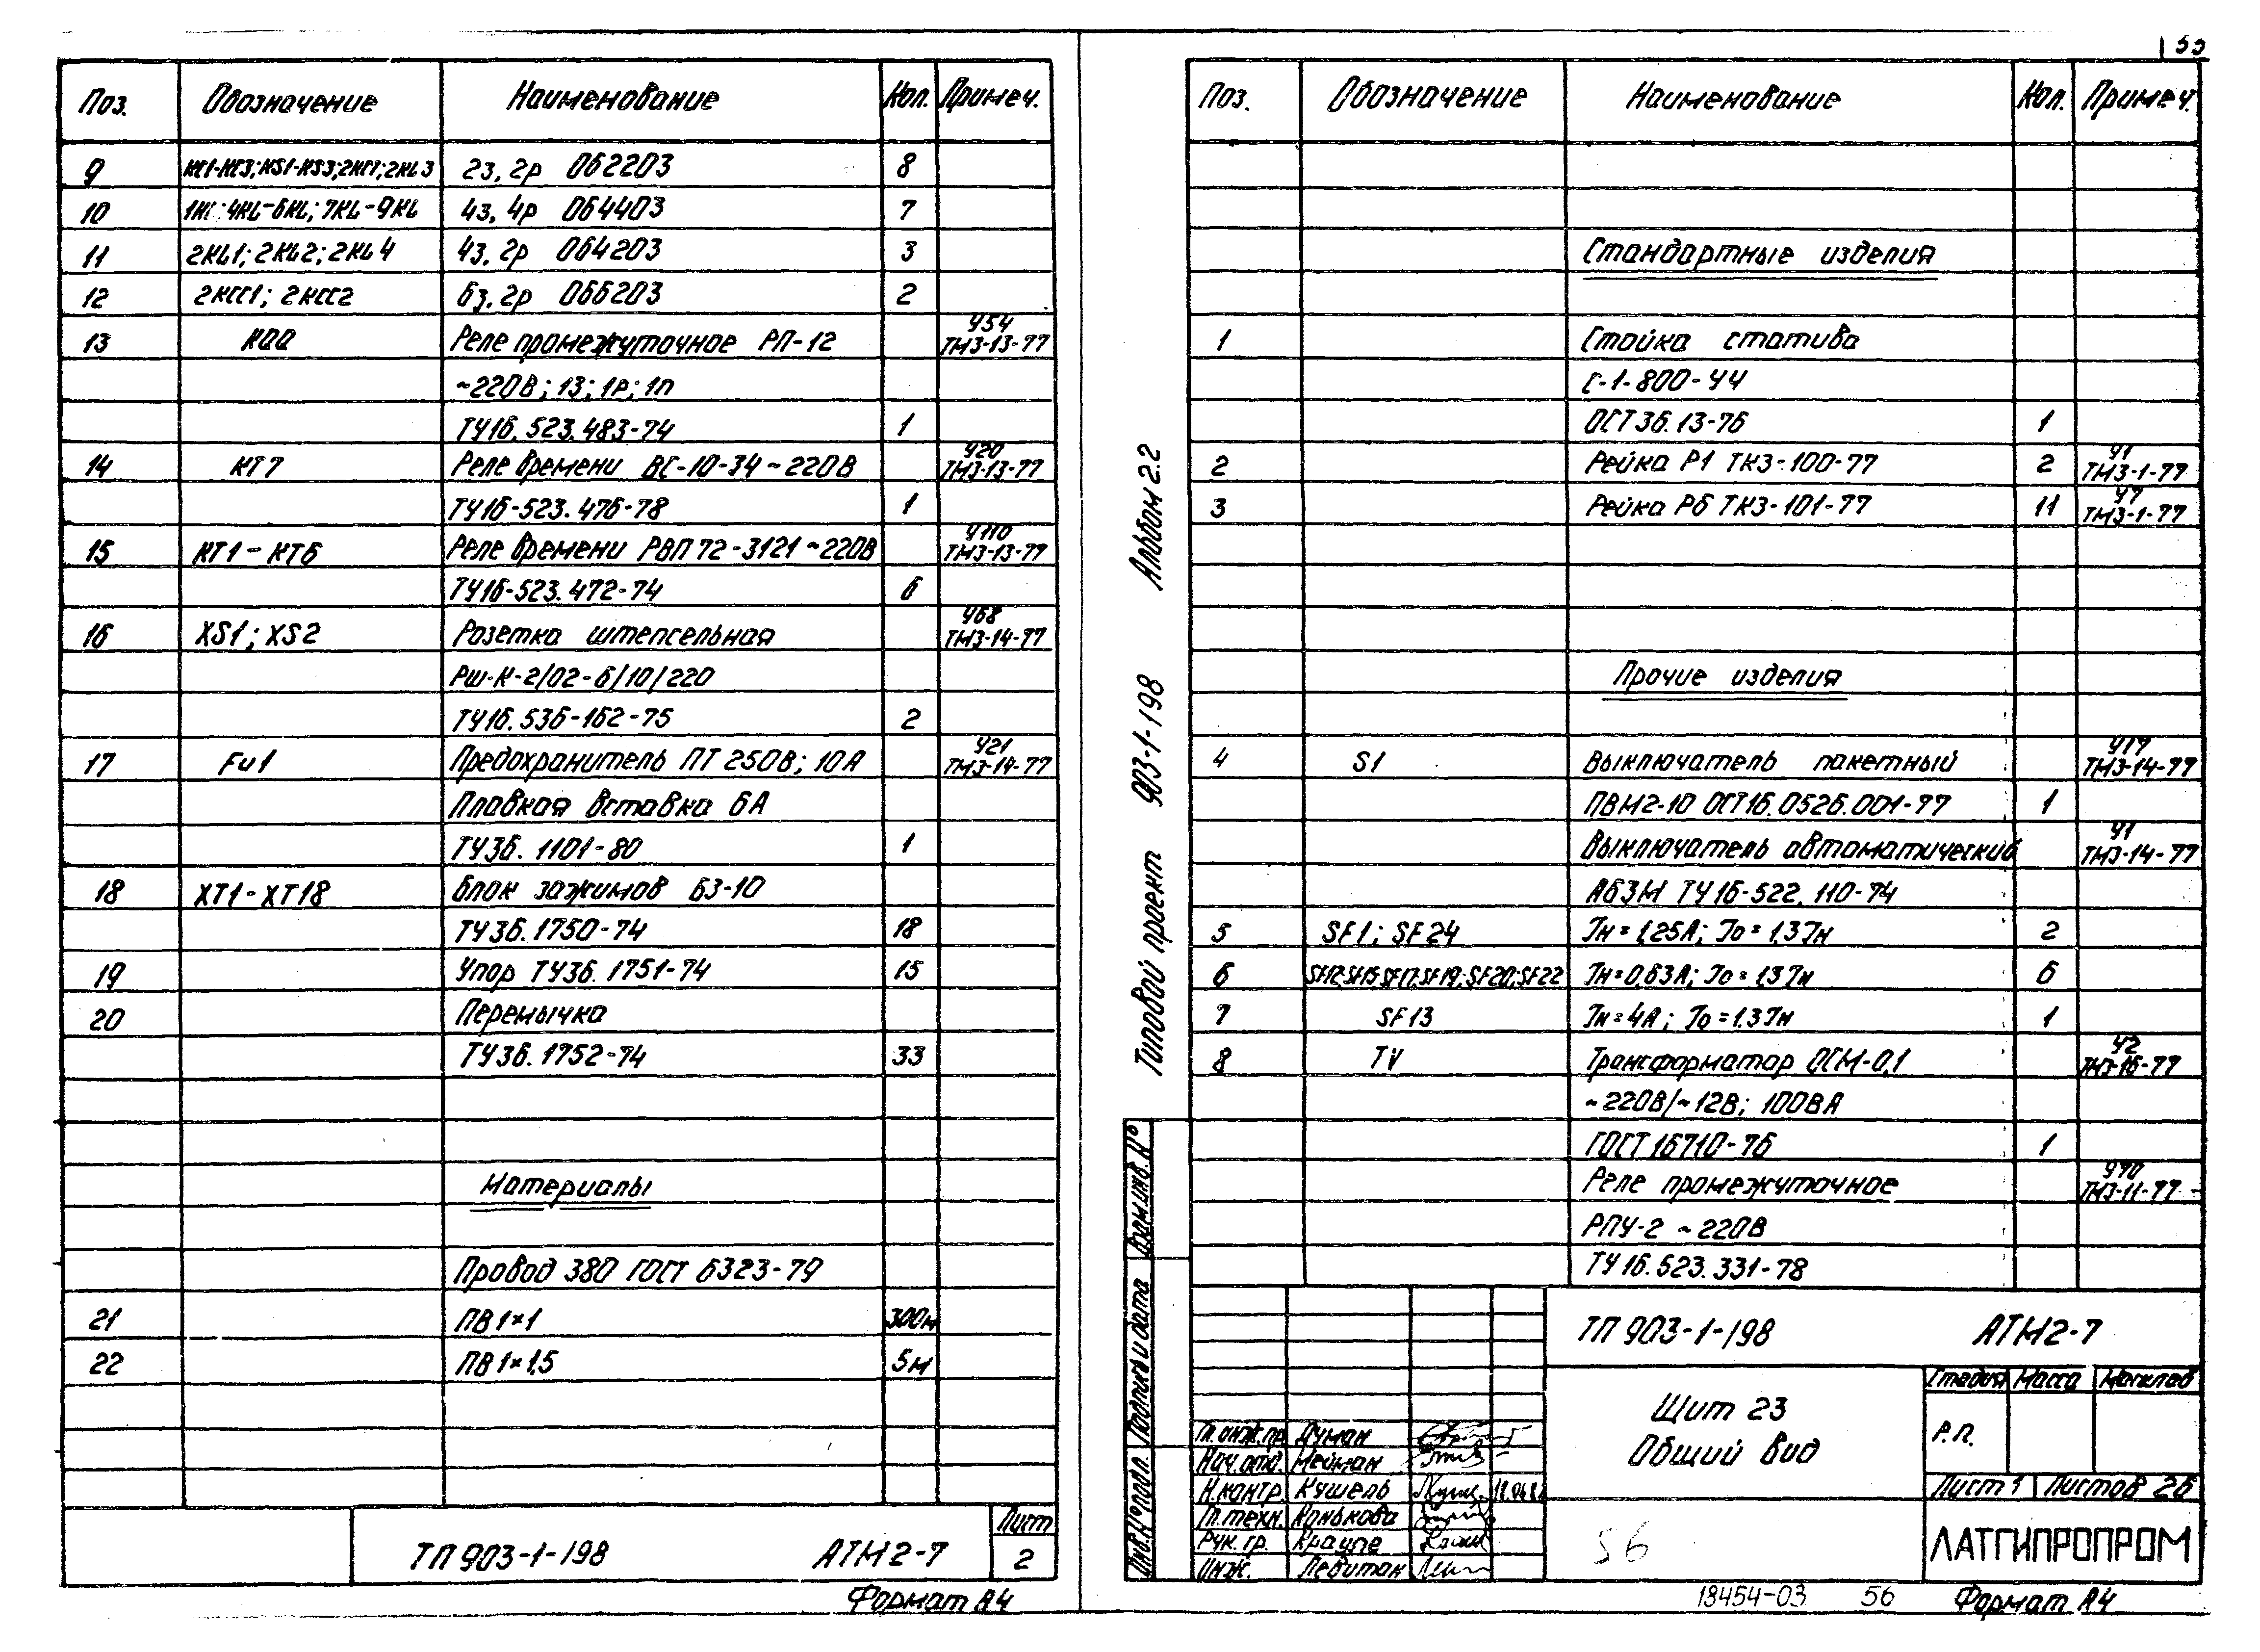 Поз. Обозначение Наименование Кол. Примеч.
9 КС1-КС3; KS1-KS3; 2КС7; 2KL3 2з, 2р 062203 8
10 4KL-6KL; 7KL-9KL 4з, 4р 064403 7
11 2KL1; 2KL2; 2KL4 4з, 2р 064203 3
12 2КСС1; 2КСС2 6з, 2р 066203 2
13 Реле промежуточное РП-12 У54 ТМ3-13-77
~220В; 1з; 1р; 1п
ТУ16.523.483-74 1
14 КТ7 Реле времени ВС-10-34 ~220В У20 ТМ3-13-77
ТУ16-523.476-78 1
15 КТ1-КТ6 Реле времени РВП72-3121 ~220В У110 ТМ3-13-77
ТУ16-523.472-74 6
16 XS1; XS2 Розетка штепсельная У68 ТМ3-14-77
РШ-К-2/02-6/10/220
ТУ16.536-162-75 2
17 Fu1 Предохранитель ПТ 250В; 10А У21 ТМ3-14-77
Плавкая вставка 6А
ТУ36.1101-80 1
18 ХТ1-ХТ18 Блок зажимов БЗ-10
ТУ36.1750-74 18
19 Упор ТУ36.1751-74 15
20 Перемычка
ТУ36.1752-74 33
Материалы
Провод 380 ГОСТ 6323-79
21 ПВ 1×1 300м
22 ПВ 1×1,5 5м
ТП 903-1-198 АТМ2-7 Лист 2
Формат А4
Альбом 2.2
Типовой проект 903-1-198
Взам.инв.№
Подпись и дата
Инв.№подл.
Поз. Обозначение Наименование Кол. Примеч.
Стандартные изделия
1 Стойка статива
С-1-800-У4
ОСТ36.13-76 1
2 Рейка Р1 ТК3-100-77 2 У1 ТМ3-1-77
3 Рейка Р6 ТК3-101-77 11 У7 ТМ3-1-77
Прочие изделия
4 S1 Выключатель пакетный У17 ТМ3-14-77
ПВМ2-10 ОСТ16.0526.001-77 1
Выключатель автоматический У1 ТМ3-14-77
А63М ТУ16-522.110-74
5 SF1; SF24 Iн=1,25А; Iо=1,3Iн 2
6 SF12; SF15; SF17; SF19; SF20; SF22 Iн=0,63А; Iо=1,3Iн 6
7 SF13 Iн=4А; Iо=1,3Iн 1
8 TV Трансформатор ОСМ-0,1 У2 ТМ3-16-77
~220В/~12В; 100ВА
ГОСТ 16710-76 1
Реле промежуточное У90 ТМ3-11-77
РПУ-2 ~220В
ТУ16.523.331-78
ТП 903-1-198 АТМ2-7
Щит 23
Общий вид
Стадия Масса Масштаб
Р.П.
Лист 1 Листов 26
Гл.инж.пр. Думан
Нач.отд. Нейман
Н.контр. Кушель
Гл.техн. Конькова
Рук.гр. Крауле
Инж. Левитан
ЛАТГИПРОПРОМ
56
18454-03 56
Формат А4